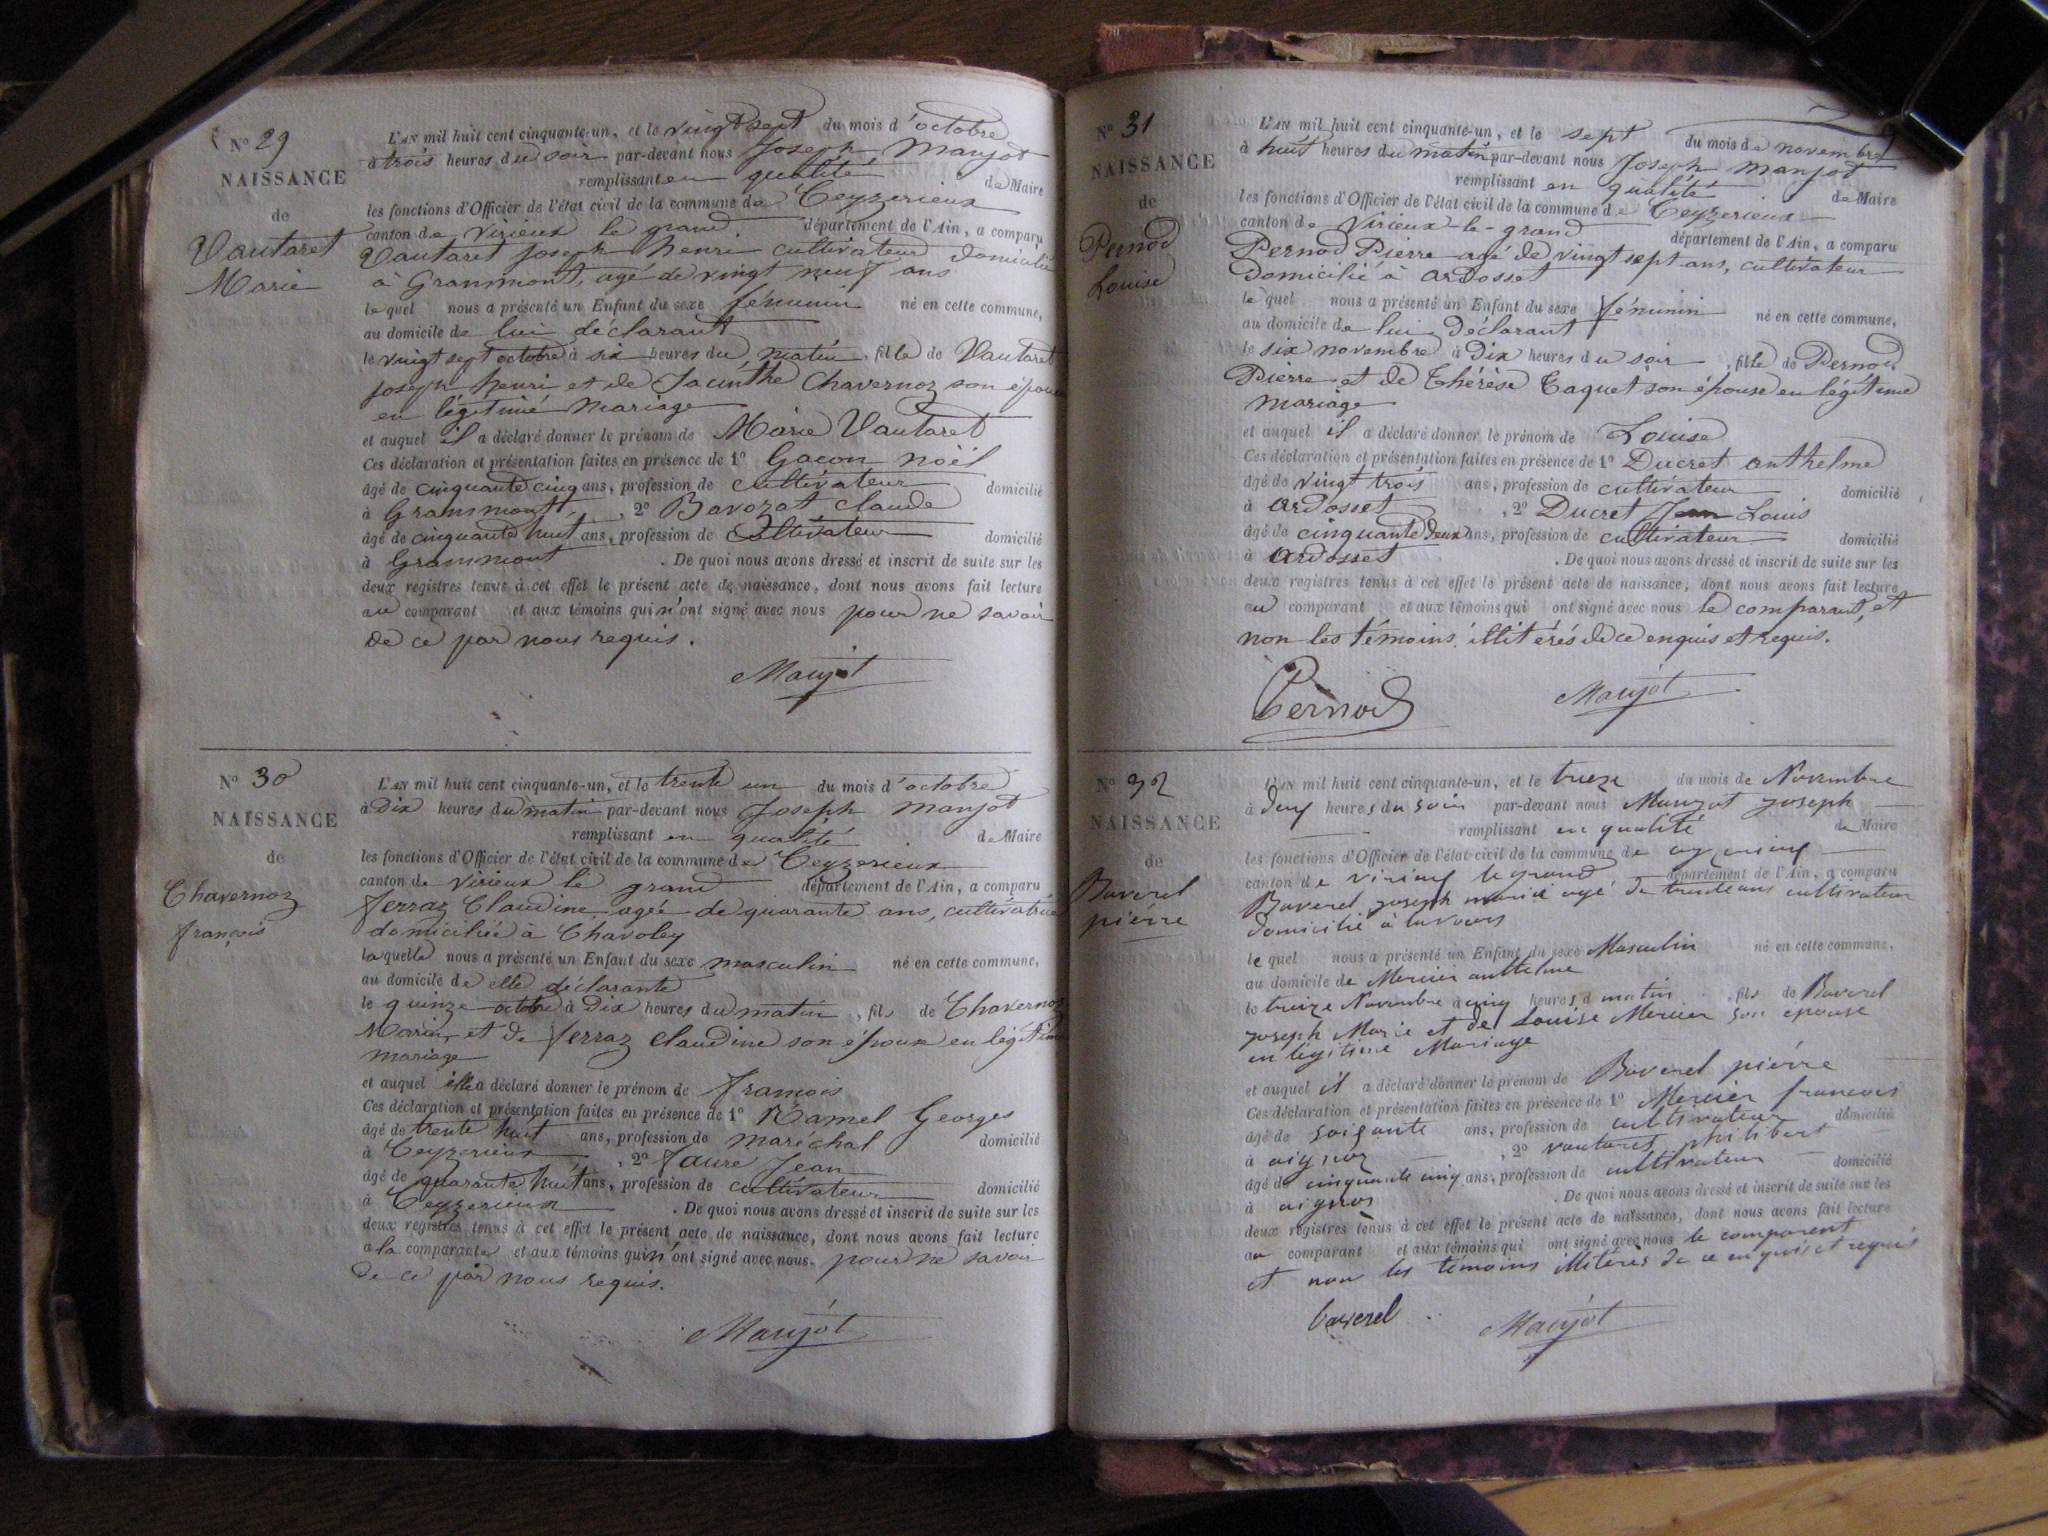 N° 29
NAISSANCE
de
Vautaret
Marie
L'AN mil huit cent cinquante-un, et le vingt sept du mois d'octobre
à trois heures du soir par-devant nous Joseph Manjot
remplissant en qualité de Maire
les fonctions d'Officier de l'état civil de la commune de Ceyzerieux
canton de virieux le grand département de l'Ain, a comparu
Vautaret Joseph henri cultivateur domicilié
à Grammont, agé de vingt neuf ans
le quel nous a présenté un Enfant du sexe féminin né en cette commune,
au domicile de lui déclarant
le vingt sept octobre à six heures du matin, fille de Vautaret
Joseph henri et de Jacinthe Chavernoz son épouse
en légitime mariage
et auquel il a déclaré donner le prénom de Marie Vautaret
Ces déclaration et présentation faites en présence de 1° Gacon noël
âgé de cinquante cinq ans, profession de cultivateur domicilié
à Grammont, 2° Bavozat claude
âgé de cinquante huit ans, profession de cultivateur domicilié
à Grammont. De quoi nous avons dressé et inscrit de suite sur les
deux registres tenus à cet effet le présent acte de naissance, dont nous avons fait lecture
au comparant et aux témoins qui n'ont signé avec nous pour ne savoir
de ce par nous requis.
Manjot
N° 30
NAISSANCE
de
Chavernoz
françois
L'AN mil huit cent cinquante-un, et le trente un du mois d'octobre
à Dix heures du matin par-devant nous Joseph Manjot
remplissant en qualité de Maire
les fonctions d'Officier de l'état civil de la commune de Ceyzerieux
canton de virieux le grand département de l'Ain, a comparu
ferraz Claudine agée de quarante ans, cultivatrice
domiciliée à Chavoley
laquelle nous a présenté un Enfant du sexe masculin né en cette commune,
au domicile de elle déclarante
le quinze octobre à Dix heures du matin, fils de Chavernoz
Marin et de ferraz Claudine son épouse en légitime
mariage
et auquel elle a déclaré donner le prénom de françois
Ces déclaration et présentation faites en présence de 1° Ramel Georges
âgé de trente huit ans, profession de maréchal domicilié
à Ceyzerieux, 2° faure Jean
âgé de quarante huit ans, profession de cultivateur domicilié
à Ceyzerieux. De quoi nous avons dressé et inscrit de suite sur les
deux registres tenus à cet effet le présent acte de naissance, dont nous avons fait lecture
a la comparante et aux témoins qui n'ont signé avec nous. pour ne savoir
de ce par nous requis.
Manjot
N° 31
NAISSANCE
de
Pernod
Louise
L'AN mil huit cent cinquante-un, et le sept du mois de novembre
à huit heures du matin par-devant nous Joseph Manjot
remplissant en qualité de Maire
les fonctions d'Officier de l'état civil de la commune de Ceyzerieux
canton de Virieux-le-grand département de l'Ain, a comparu
Pernod Pierre agé de vingt sept ans, cultivateur
Domicilié à ardosset
le quel nous a présenté un Enfant du sexe féminin né en cette commune,
au domicile de lui déclarant
le six novembre à Dix heures du soir, fille de Pernod
Pierre et de Thérèse Taquet son épouse en légitime
mariage
et auquel il a déclaré donner le prénom de Louise
Ces déclaration et présentation faites en présence de 1° Ducret anthelme
âgé de vingt trois ans, profession de cultivateur domicilié
à ardosset, 2° Ducret Jean Louis
âgé de cinquante deux ans, profession de cultivateur domicilié
à ardosset. De quoi nous avons dressé et inscrit de suite sur les
deux registres tenus à cet effet le présent acte de naissance, dont nous avons fait lecture
au comparant et aux témoins qui ont signé avec nous le comparant, et
non les témoins illitérés de ce enquis et requis.
Pernod Manjot
N° 32
NAISSANCE
de
Baverel
pierre
L'AN mil huit cent cinquante-un, et le treize du mois de Novembre
à deux heures du soir par-devant nous Manjot joseph
remplissant en qualité de Maire
les fonctions d'Officier de l'état civil de la commune de
canton de virieux le grand département de l'Ain, a comparu
Baverel joseph marie agé de trente ans cultivateur
domicilié à lavours
le quel nous a présenté un Enfant du sexe Masculin né en cette commune,
au domicile de Mercier anthelme
le treize Novembre à cinq heures d matin, fils de Baverel
joseph Marie et de Louise Mercier son épouse
en légitime Mariage
et auquel il a déclaré donner le prénom de Baverel pierre
Ces déclaration et présentation faites en présence de 1° Mercier francois
âgé de soixante ans, profession de cultivateur domicilié
à aignoz, 2° vautaret philibert
âgé de cinquante cinq ans, profession de cultivateur domicilié
à aignos. De quoi nous avons dressé et inscrit de suite sur les
deux registres tenus à cet effet le présent acte de naissance, dont nous avons fait lecture
au comparant et aux témoins qui ont signé avec nous le comparent
et non les temoins illiterés de ce enquis et requis
baverel Manjot